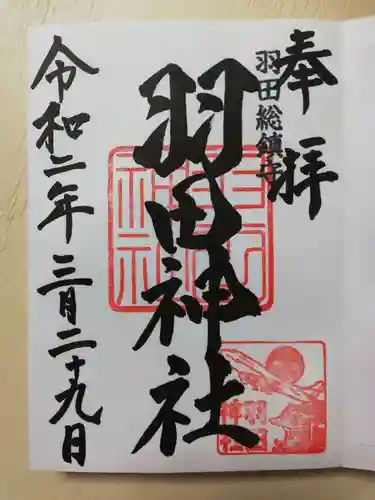 奉拝
羽田総鎮守
羽田神社
令和二年三月二十九日
羽田
神社